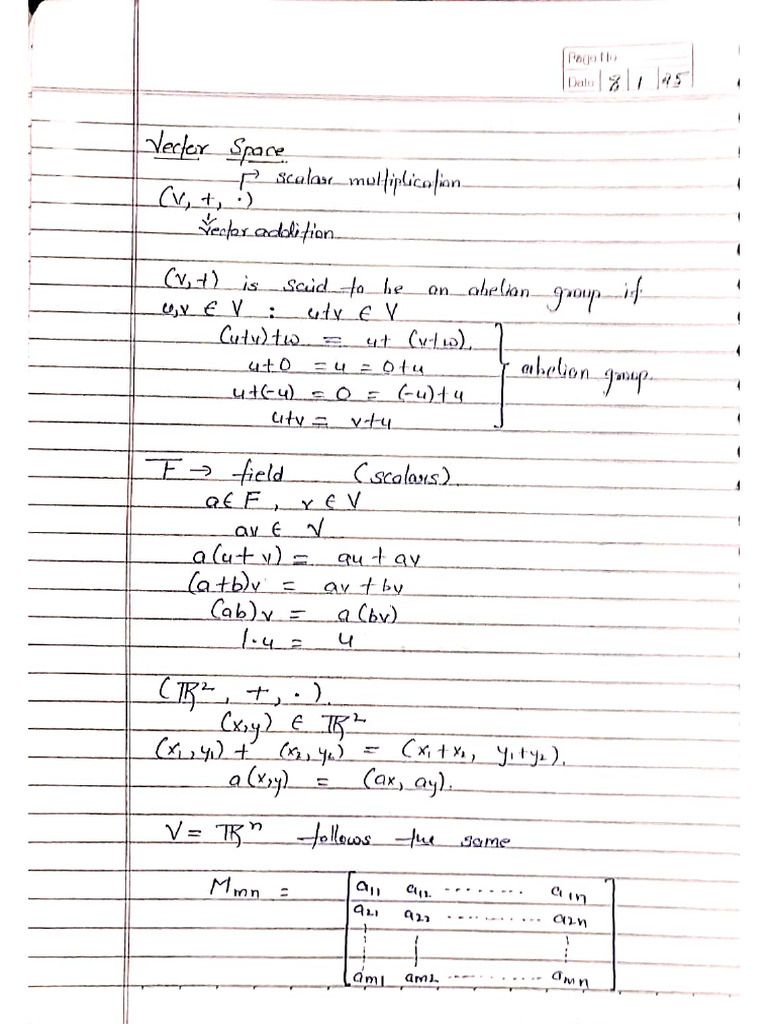 Page No
Date 8 1 25
Vector Space
→ scalar multiplication
(V, +, ·)
↓
Vector addition
(V, +) is said to be an abelian group if
u,v ∈ V : u+v ∈ V
(u+v)+w = u+ (v+w).
u+0 = u = 0+u
abelian group.
u+(-u) = 0 = (-u)+u
u+v = v+u
F → field (scalars)
a∈F, v∈V
av ∈ V
a(u+v) = au + av
(a+b)v = av + bv
(ab)v = a(bv)
1·u = u
(ℝ², +, ·).
(x,y) ∈ ℝ²
(x₁,y₁) + (x₂, y₂) = (x₁+x₂, y₁+y₂).
a(x,y) = (ax, ay).
V = ℝⁿ follows the same
Mmn =
a₁₁ a₁₂ ........ a₁n
a₂₁ a₂₂ .......... a₂n
am1 am2 .......... amn